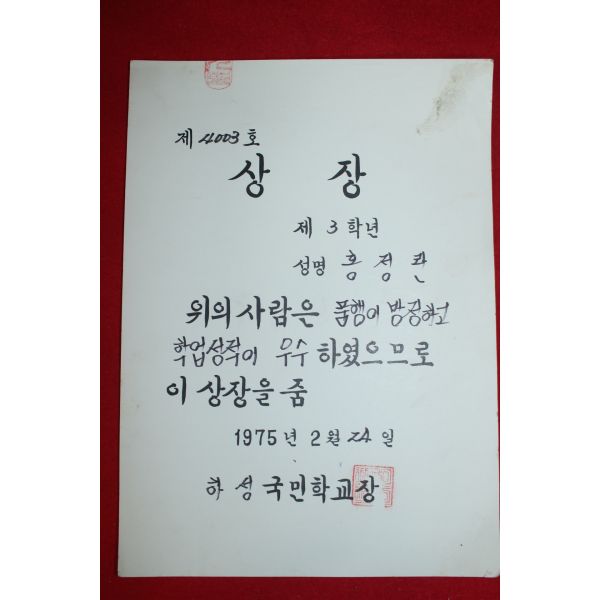 제 4003 호
상 장
제 3 학년
성명 홍정관
위의 사람은 품행이 방정하고
학업성적이 우수하였으므로
이 상장을 줌
1975년 2월 24일
하성국민학교장